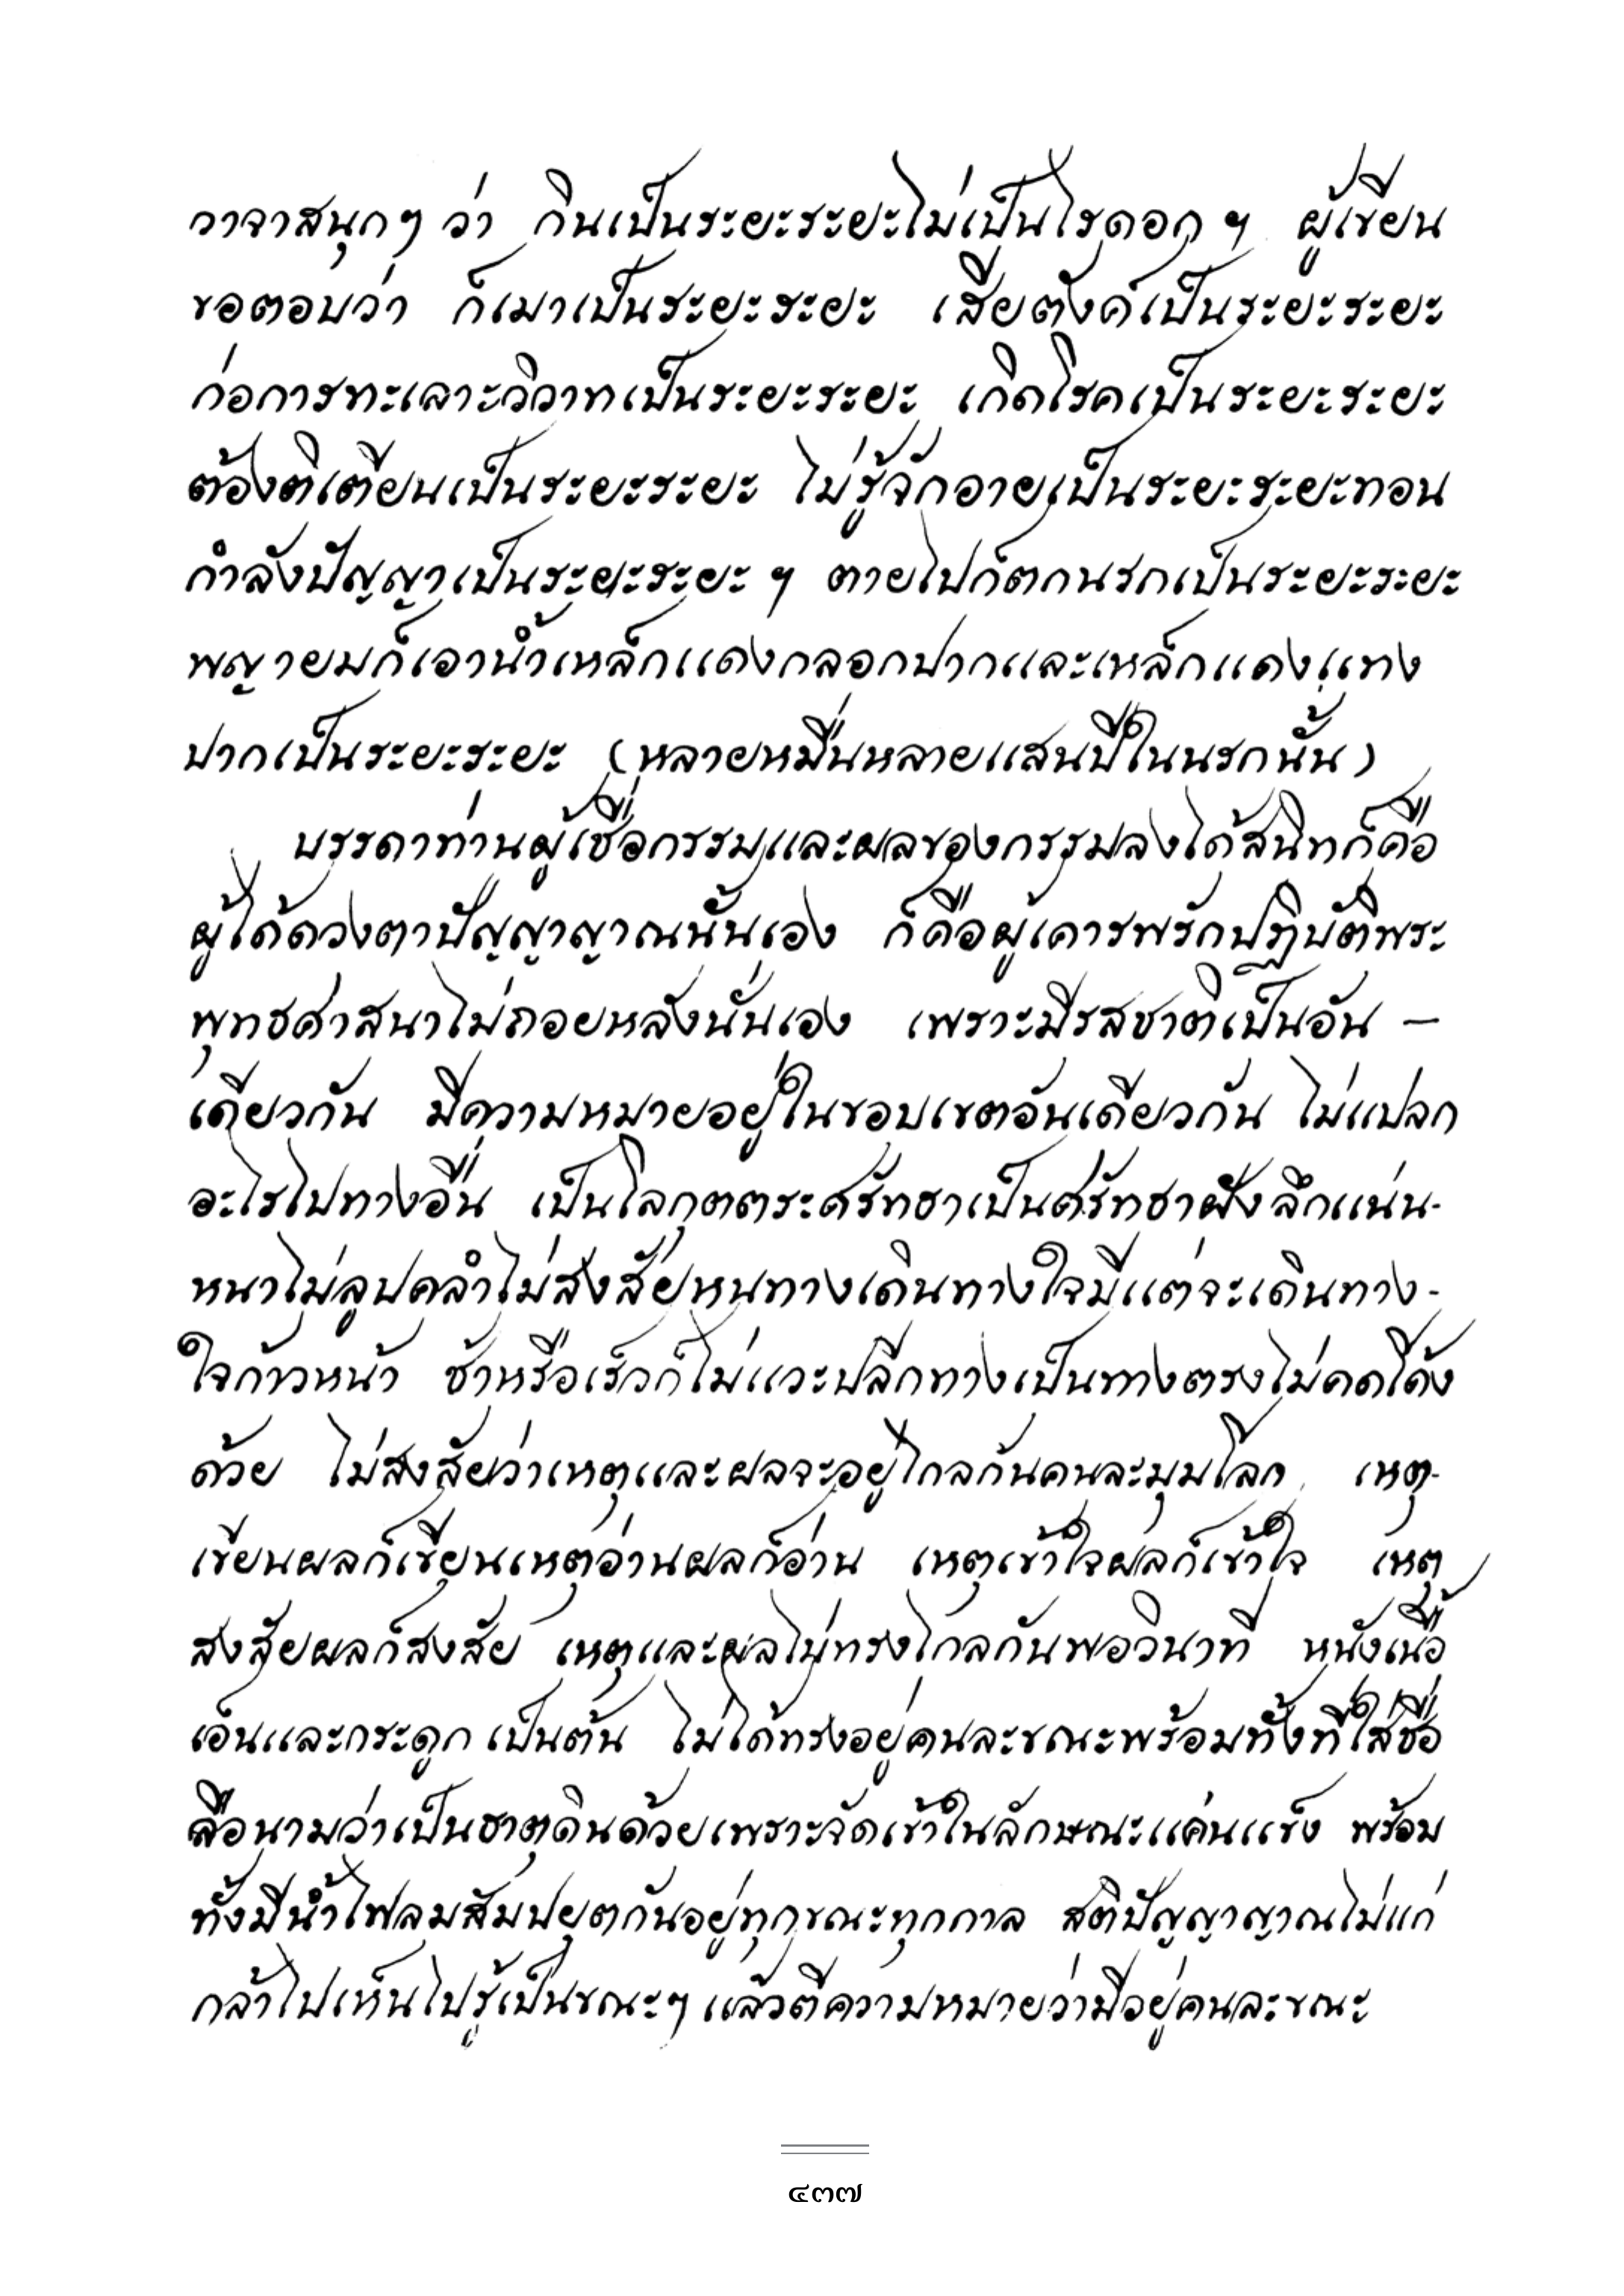 วาจาสนุกๆ ว่า กินเป็นระยะระยะไม่เป็นไรดอก ฯ ผู้เขียน
ขอตอบว่า ก็เมาเป็นระยะระยะ เสียตังค์เป็นระยะระยะ
ก่อการทะเลาะวิวาทเป็นระยะระยะ เกิดโรคเป็นระยะระยะ
ต้องติเตียนเป็นระยะระยะ ไม่รู้จักอายเป็นระยะระยะทอน
กำลังปัญญาเป็นระยะระยะ ฯ ตายไปก็ตกนรกเป็นระยะระยะ
พญายมก็เอาน้ำเหล็กแดงกลอกปากและเหล็กแดงแทง
ปากเป็นระยะระยะ (หลายหมื่นหลายแสนปีในนรกนั้น)
บรรดาท่านผู้เชื่อกรรมและผลของกรรมลงได้สนิทก็คือ
ผู้ได้ดวงตาปัญญาญาณนั้นเอง ก็คือผู้เคารพรักปฏิบัติพระ
พุทธศาสนาไม่ถอยหลังนั่นเอง เพราะมีรสชาติเป็นอัน –
เดียวกัน มีความหมายอยู่ในขอบเขตอันเดียวกัน ไม่แปลก
อะไรไปทางอื่น เป็นโลกุตตระศรัทธาเป็นศรัทธาฝังลึกแน่น-
หนาไม่ลูบคลำไม่สงสัยหนทางเดินทางใจมีแต่จะเดินทาง-
ใจก้าวหน้า ช้าหรือเร็วก็ไม่แวะปลีกทางเป็นทางตรงไม่คดโค้ง
ด้วย ไม่สงสัยว่าเหตุและผลจะอยู่ไกลกันคนละมุมโลก เหตุ-
เขียนผลก็เขียนเหตุอ่านผลก็อ่าน เหตุเข้าใจผลก็เข้าใจ เหตุ
สงสัยผลก็สงสัย เหตุและผลไม่ทรงไกลกันพอวินาที หนังเนื้อ
เอ็นและกระดูก เป็นต้น ไม่ได้ทรงอยู่คนละขณะพร้อมทั้งที่ใส่ชื่อ
ลือนามว่าเป็นธาตุดินด้วยเพราะจัดเข้าในลักษณะแค่นแข็ง พร้อม
ทั้งมีน้ำไฟลมสัมปยุตกันอยู่ทุกขณะทุกกาล สติปัญญาญาณไม่แก่
กล้าไปเห็นไปรู้เป็นขณะๆ แล้วตีความหมายว่ามีอยู่คนละขณะ
๔๓๗